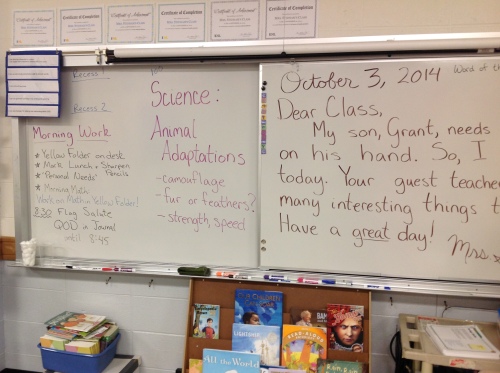 Certificate of Completion
Certificate of Achievement
Certificate of Completion
Certificate of Completion
Recess 1
Recess 2
Morning Work
* Yellow Folder on desk
* Mark Lunch & Sharpen Pencils
* Personal Needs
* Morning Math
Work on Math in Yellow Folder!
8:30 Flag Salute
QOD in Journal
until 8:45
Science:
Animal
Adaptations
- camouflage
- fur or feathers?
- strength, speed
October 3, 2014
Word of th
Dear Class,
My son, Grant, needs
on his hand. So, I
today. Your guest teache
many interesting things t
Have a great day!
Mrs
All the World